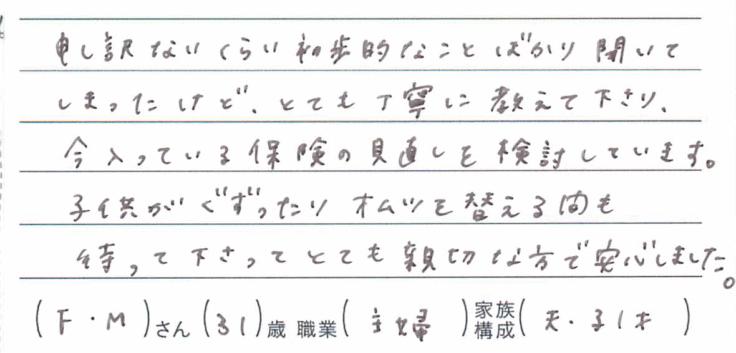 申し訳ないくらい初歩的なことばかり聞いて
しまったけど、とても丁寧に教えて下さり、
今入っている保険の見直しを検討しています。
子供がぐずったりオムツを替える間も
待って下さってとても親切な方で安心しました。
(F・M)さん(31)歳 職業(主婦)家族構成(夫・子1才)